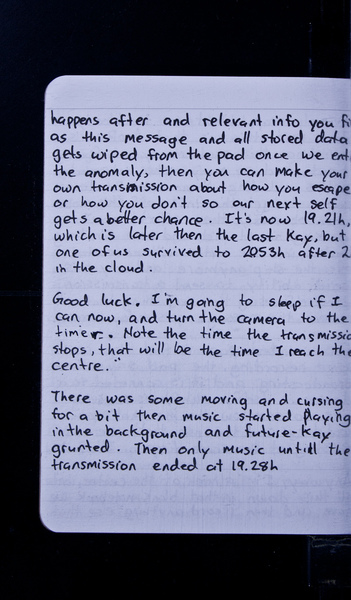 happens after and relevant info you
as this message and all stored data
gets wiped from the pad once we
the anomaly, then you can make your
own transmission about how you escape
or how you don't so our next self
gets a better chance. It's now 19.21h,
which is later then the last Kay, but
one of us survived to 2053h after
in the cloud.
Good luck. I'm going to sleep if I
can now, and turn the camera to the
timer. Note the time the transmissio
stops, that will be the time I reach the
centre.
There was some moving and cursing
for a bit then music started playing
in the background and future-Kay
grunted. Then only music untill the
transmission ended at 19.28h